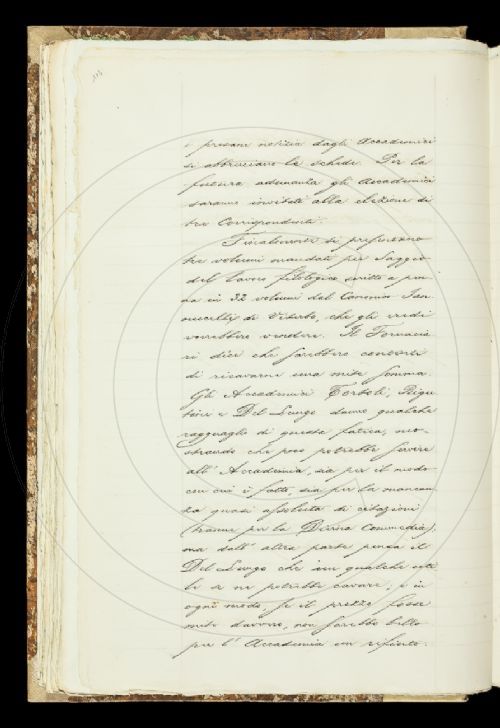 e presane notizia dagli Accademici
si abbruciano le schede. Per la
futura adunanza gli Accademici
saranno invitati alla elezione di
tre Corrispondenti.
Finalmente si presentano
tre volumi mandati per saggio
del lavoro filologico scritto a pen
na in 32 volumi dal Canonico Ian
nuccelli di Viterbo, che gli eredi
vorrebbero vendere. Il Fornacia
ri dice che sarebbero contenti
di ricavarne una mite somma.
Gli Accademici Tortoli, Rigu
tini e Del Lungo danno qualche
ragguaglio di questa fatica, mo-
strando che poco potrebbe servire
all' Accademia, sia per il modo
con cui è fatto, sia per la mancan
za quasi assoluta di citazioni
(tranne per la Divina Commedia);
ma dall' altra parte pensa il
Del Lungo che un qualche uti
le se ne potrebbe cavare; e in
ogni modo, se il prezzo fosse
mite davvero, non sarebbe bello
per l' Accademia un rifiuto.